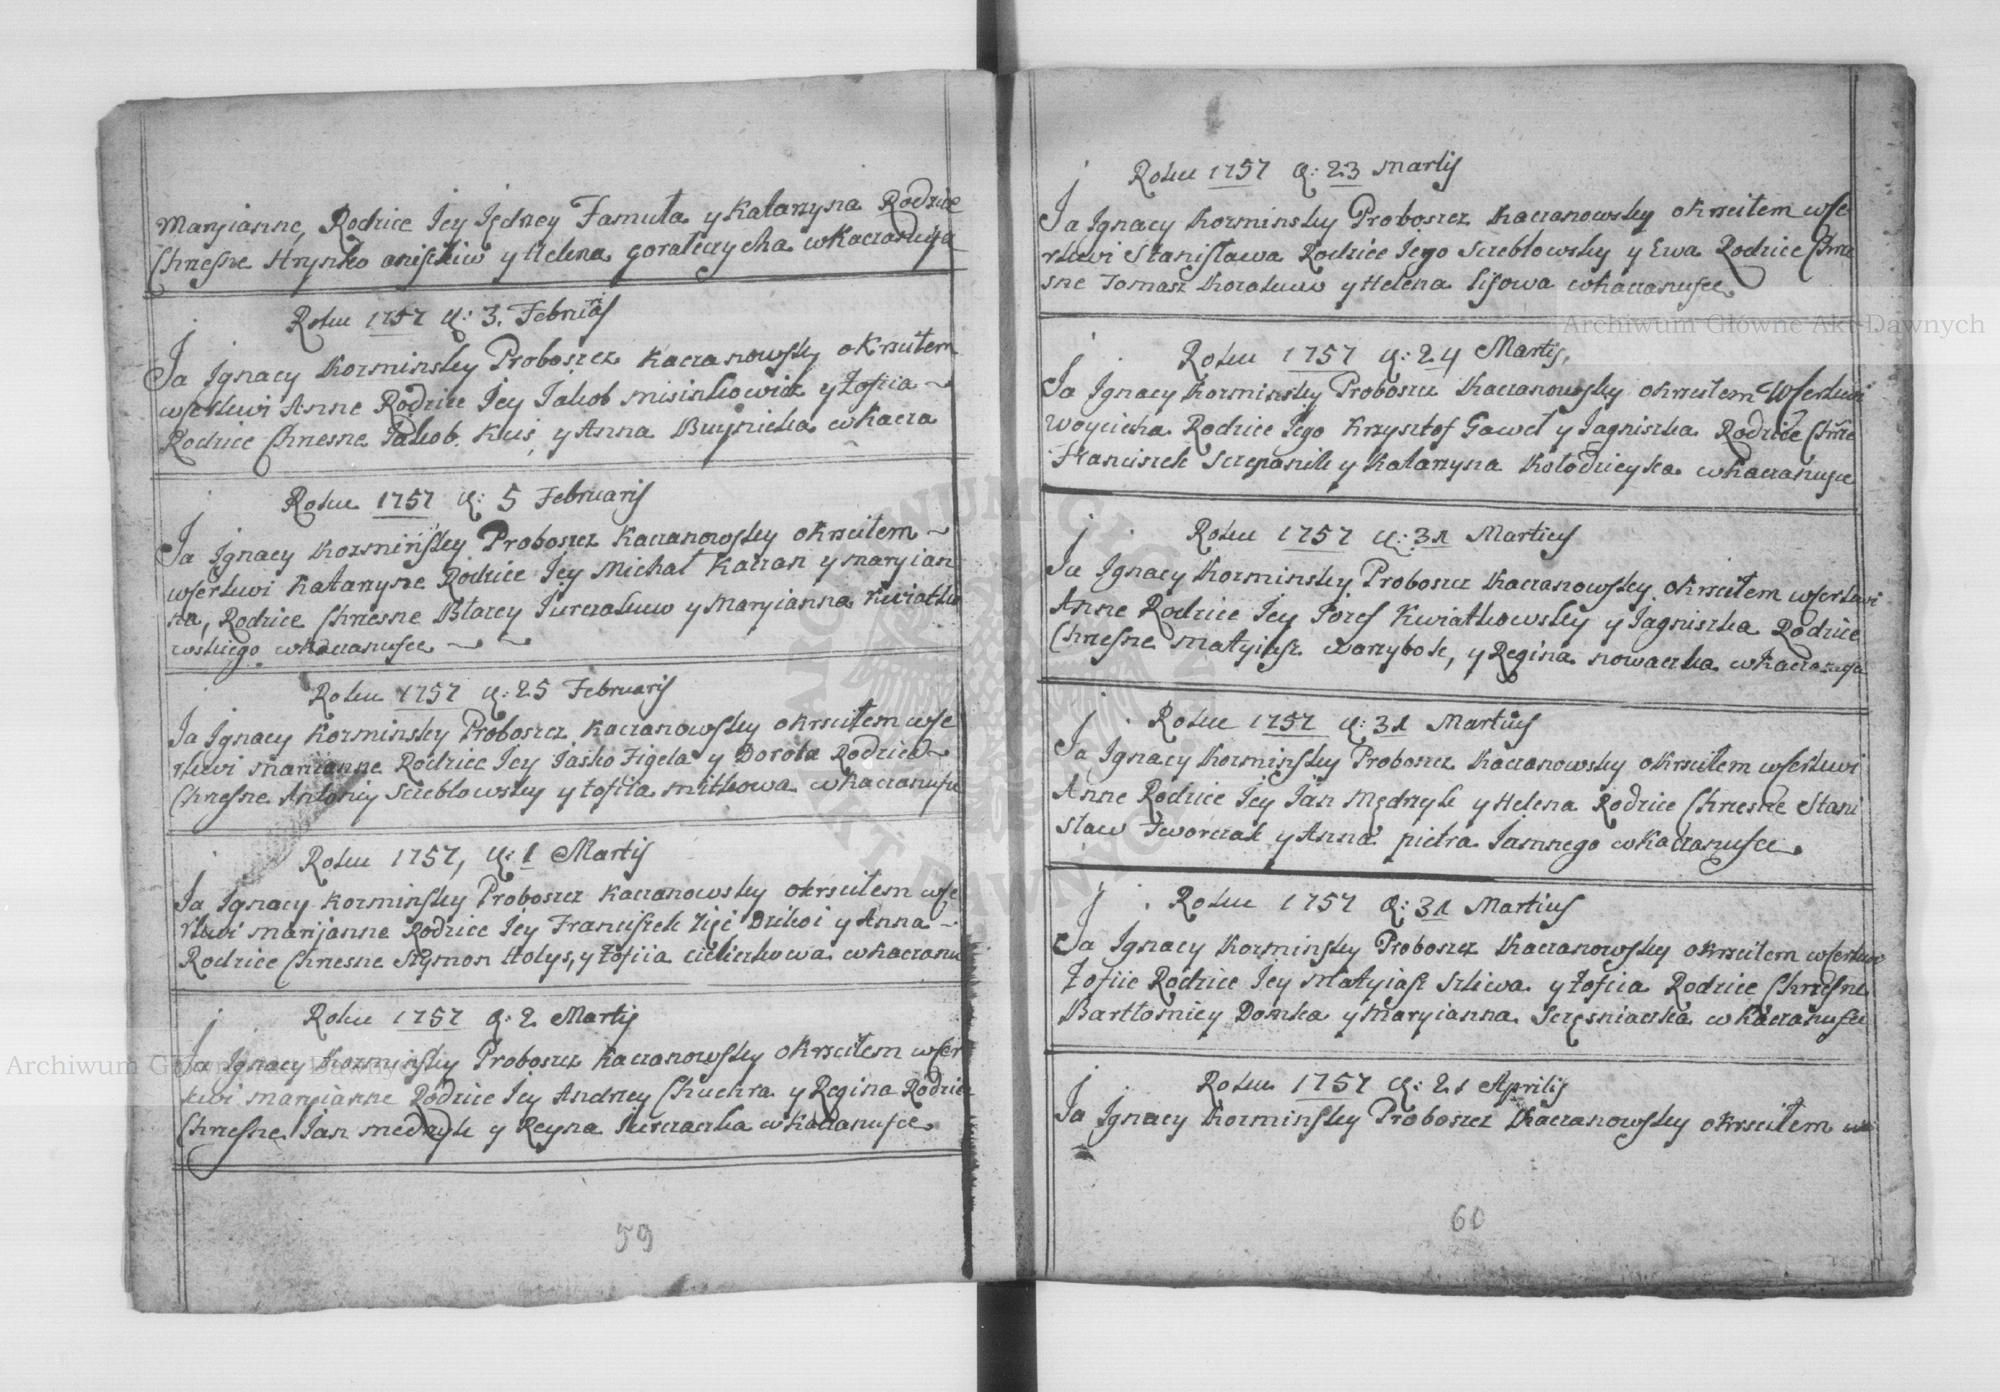 Maryianne, Rodzice Jey Jędrzey Famuła y Katarzyna Rodzice
Chrzesne Hrynko aniskiw y Helena goralczycha wKaczanuwce
Roku 1757 d: 3. Februarij
Ja Jgnacy Kozminsky Proboszcz Kaczanowsky okrzciłem
wserkwi Anne Rodzice Jey Jakob misinkowicz y Zofiia
Rodzice Chrzesne Jakob Kuś y Anna Buynicka wKacza
Roku 1757 d: 5 Februarij
Ja Jgnacy Kozminsky Proboszcz Kaczanowsky okrzciłem
wserkwi Katarzyne Rodzice Jey Michał Kaczan y maryian
na, Rodzice Chrzesne Błazey Jurczakuw y Maryianna Kwiatko
wskiego wKaczanusce
Roku 1757 d: 25 Februarij
Ja Jgnacy Kozminsky Proboszcz Kaczanowsky okrzciłem wse
rkwi marianne Rodzice Jey Jasko Figela y Dorota Rodzice
Chrzesne Antoniy Szczebłowsky y Zofiia mitkowa wKaczanusce
Roku 1757, d: 1 Martij
Ja Jgnacy Kozminsky Proboszcz Kaczanowsky okrzciłem wse
rkwi marijanne Rodzice Jey Franciszek Zięć Dzikoi y Anna
Rodzice Chrzesne Szymon Hołys, y Zofiia cielickowa wKaczanu
Roku 1757 d: 2 Martij
Ja Jgnacy Kozminsky Proboszcz Kaczanowsky okrzciłem wser
kwi maryianne Rodzice Jey Andrzey Chuchra y Regina Rodzice
Chrzesne Jan medrzyk y Reyna Jurczaczka wKaczanusce
59
Roku 1757 d: 23 Martij
Ja Jgnacy Kozminsky Proboszcz Kaczanowsky okrzciłem wse
rkwi Stanisława Rodzice Jego Szczebłowsky y Ewa Rodzice Chrze
sne Tomasz Kozakuw y Helena Lisowa wKaczanusce
Roku 1757 d: 24 Martij,
Ja Jgnacy Kozminsky Proboszcz Kaczanowsky okrzciłem Wserkwi
Woyciecha Rodzice Jego Krzysztof Gaweł y Jagniszka Rodzice Chrze
Franciszek Szczepanik y Katarzyna Kołodzieyka wKaczanusce
Roku 1757 d: 31 Martius
Ja Jgnacy Kozminsky Proboszcz Kaczanowsky okrzciłem wserkwi
Anne Rodzice Jey Jozef Kwiatkowsky y Jagniszka Rodzice
Chrzesne Matyiasz warzybok, y Regina nowaczka wKaczanusce
Roku 1757 d: 31 Martius
Ja Jgnacy Kozminsky Proboszcz Kaczanowsky okrzciłem wserkwi
Anne Rodzice Jey Jan Mędrzyk y Helena Rodzice Chrzesne Stani
sław Tworczak y Anna pietra Jamnego wKaczanusce
Roku 1757 d: 31 Martius
Ja Jgnacy Kozminsky Proboszcz Kaczanowsky okrzciłem wserkwi
Zofiie Rodzice Jey Matyiasz szliwa y Zofiia Rodzice Chrzesne
Bartłomiey Domka y Maryianna Szczęsniaczka wKaczanusce
Roku 1757 d: 21 Aprilis
Ja Jgnacy Kozminsky Proboszcz Kaczanowsky okrzciłem w
60
Archiwum Główne Akt Dawnych
Archiwum Główne Akt Dawnych